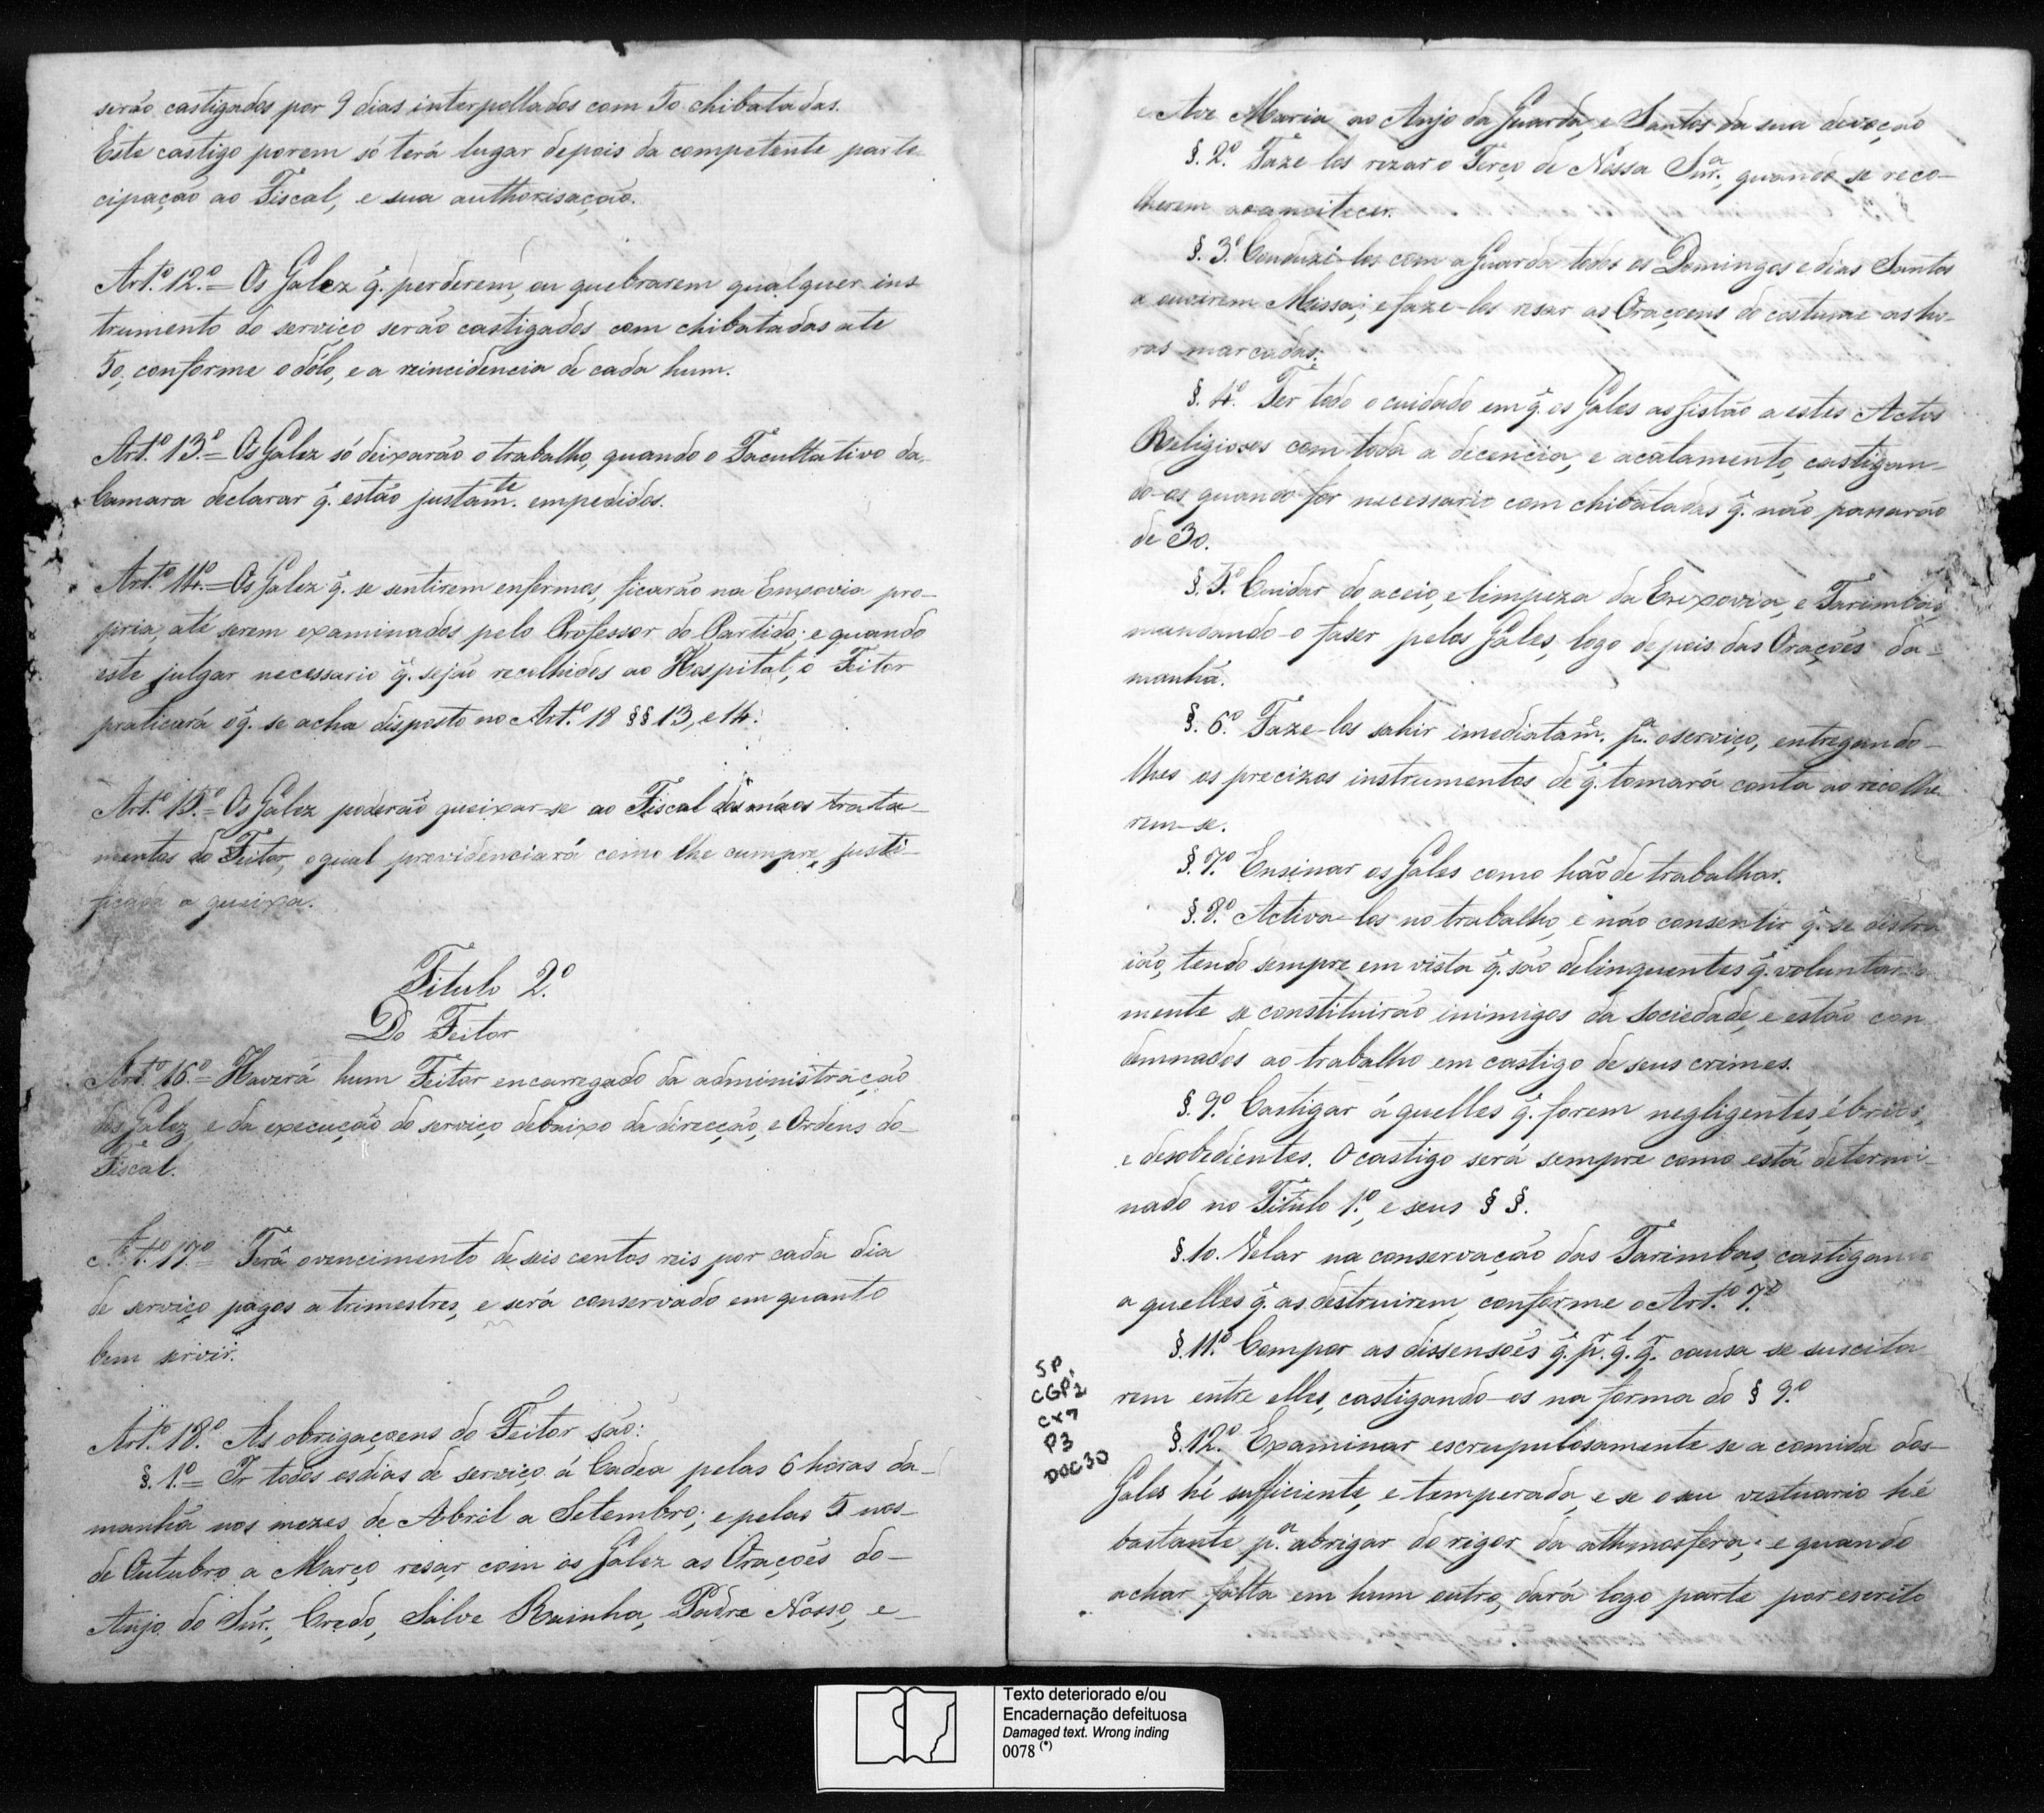 serão castigados por 9 dias interpollados com 50 chibatadas.
Este castigo porem só terá lugar depois da competente parte
cipação ao Fiscal, e sua authorisação.
Art.º 12.º = Os Galez q̃. perderem, ou quebrarem qualquer ins
trumento do serviço serão castigados com chibatadas ate
50, conforme o dólo, e a reincidencia de cada hum.
Art.º 13.º = Os Galez só deixarão o trabalho, quando o Facultativo da
Camara declarar q̃. estão justam.te empedidos.
Art.º 14.º = Os Galez q̃. se sentirem enfermos, ficarão na Enxovia pro-
pria, até serem examinados pelo Professor do Partido; e quando
este julgar necessario q̃. sejão recolhidos ao Hospital, o Feitor
praticará o q̃. se acha disposto no Art.º 18 §§ 13, e 14.
Art.º 15.º = Os Galez poderão queixar-se ao Fiscal dos máos trata-
mentos do Feitor, o qual providenciará como lhe cumpre, justi-
ficada a queixa.
Titulo 2.º
Do Feitor
Art.º 16.º = Haverá hum Feitor encarregado da administração
dos Galez, e da execução do serviço debaixo da direcção, e Ordens do-
Fiscal.
Art.º 17.º = Terá o vencimento de seis centos reis por cada dia
de serviço pagos a trimestres, e será conservado em quanto
bem servir.
Art.º 18.º As obrigaçoens do Feitor são:
§. 1.º = Ir todos os dias de serviço á Cadea pelas 6 horas da-
manhã nos mezes de Abril a Setembro; e pelas 5 nos-
de Outubro a Março resar com os Galez as Orações do-
Anjo do Snr., Credo, Salve Rainha, Padre Nosso, e-
Ave Maria ao Anjo da Guarda, e Santos da sua devoção
§. 2.º Faze-los rezar o Terço de Nossa Snr.ª, quando se reco-
lherem ao anoitecer.
§. 3.º Conduzi-los com a Guarda todos os Domingos e dias Santos
a ouvirem Missa; e faze-los resar as Oraçoens do costume as ho-
ras marcadas.
§. 4.º Ter todo o cuidado em q̃. os Gales assistão a estes Actos
Religiosos com toda a decencia, e acatamento, castigan-
do-os quando for necessario com chibatadas q̃. não passarão
de 30.
§. 5.º Cuidar do aceio, e limpeza da Enxovia, e Tarimbas,
mandando-o faser pelos Gales, logo depois das Orações da-
manhã.
§. 6.º Faze-los sahir imediatam.e p.ª o serviço, entregando-
lhes os precizos instrumentos de q̃. tomará conta ao recolhe
rem-se.
§. 7.º Ensinar os Gales como hão de trabalhar.
§. 8.º Activa-los no trabalho, e não consentir q̃. se distra
ião, tendo sempre em vista q̃. são delinquentes q̃. voluntaria
mente se constituirão inimigos da Sociedade, e estão con
demnados ao trabalho em castigo de seus crimes.
§. 9.º Castigar á quelles q̃. forem negligentes, ébrios,
e desobedientes. O castigo será sempre como está determi-
nado no Titulo 1.º, e seus § §.
§. 10. Velar na conservação das Tarimbas, castigando
a quelles q̃. as destruirem conforme o Art.º 7.º
§. 11.º Compor as dissensões q̃. p.r q.l q.r causa se suscita
rem entre elles, castigando-os na forma do § 9.º
§. 12.º Examinar escrupulosamente se a comida dos-
Gales hé sufficiente, e temperada, e se o seu vestuario hé
bastante p.ª abrigar do rigor da athmosfera; e quando
achar falta em hum outro, dará logo parte por escrito
SP
CGP1
CX7
P3
DOC30
Texto deteriorado e/ou
Encadernação defeituosa
Damaged text. Wrong inding
0078 (*)